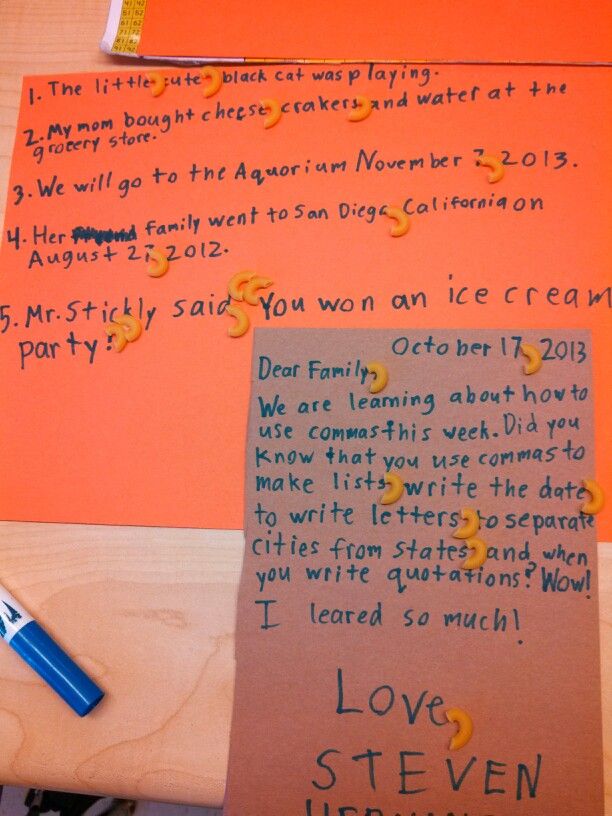 1. The little, cute, black cat was playing.
2. My mom bought cheese, crakers, and water at the
grocery store.
3. We will go to the Aquorium November 7, 2013.
4. Her family went to San Diego, California on
August 27, 2012.
5. Mr. Stickly said, "You won an ice cream
party!"
October 17, 2013
Dear Family,
We are learning about how to
use commas this week. Did you
know that you use commas to
make lists, write the date,
to write letters, to separate
cities from states, and when
you write quotations? Wow!
I leared so much!
Love,
STEVEN